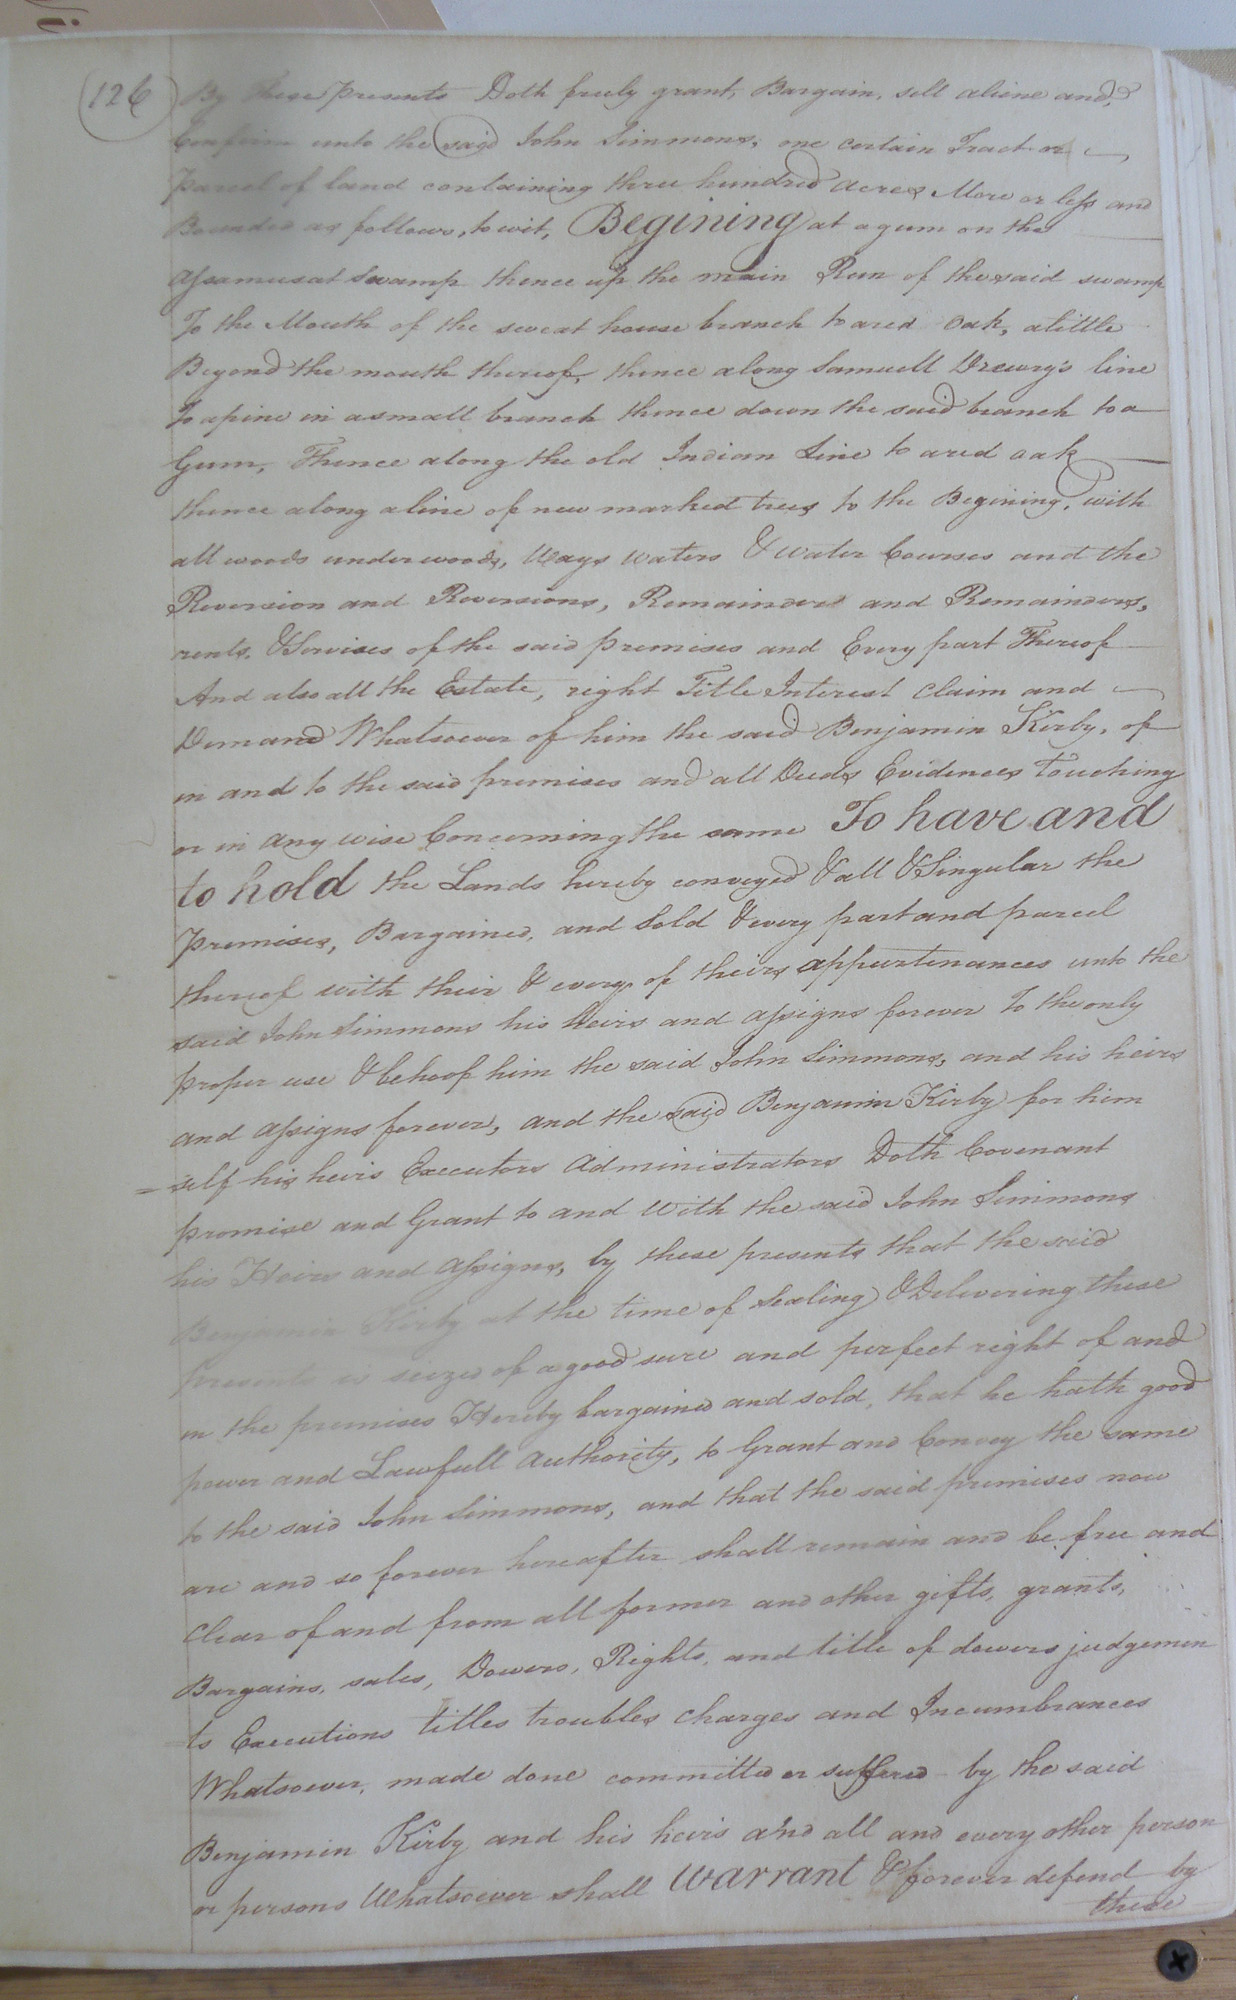 126
By these presents Doth freely grant, Bargain, sell aliene and,
Confirm unto the said John Simmons, one certain Tract or
Parcel of land containing three hundred acres More or less and
Bounded as follows, to wit, Begining at a gum on the
Assamusat Swamp thence up the main Run of the said swamp
To the Mouth of the sweat house branch to a red Oak, a little
Beyond the mouth thereof, thence along Samuell Drewry's line
to a pine in a small branch thence down the said branch to a
Gum, Thence along the old Indian Line to a red oak
thence along a line of new marked trees to the Begining, with
all woods underwoods, Ways waters & water Courses and the
Reversion and Reversions, Remainder and Remainders,
rents, & Servises of the said premises and Every part Thereof
And also all the Estate, right Title Interest claim and
Demand Whatsoever of him the said Benjamin Kirby, of
in and to the said premises and all Deeds Evidences Touching
or in any wise Concerning the same To have and
to hold the Lands hereby conveyed & all & Singular the
Premises, Bargained, and Sold & every part and parcel
thereof with their & every of theirs appurtenances unto the
said John Simmons his Heirs and assigns forever To the only
proper use & behoof him the said John Simmons, and his heirs
and assigns forever, and the said Benjamin Kirby for him
=self his heirs Executors Administrators Doth Covenant
promise and Grant to and With the said John Simmons
his Heirs and assigns, by these presents that the said
Benjamin Kirby at the time of Sealing & Delivering these
presents is seized of a good sure and perfect right of and
in the premises Hereby bargained and sold, that he hath good
power and Lawfull Authority, to Grant and Convey the same
to the said John Simmons, and that the said premises now
are and so forever hereafter shall remain and be free and
Clear of and from all former and other gifts, grants,
Bargains, sales, Dowers, Rights, and title of dowers judgemen
ts Executions titles troubles charges and Incumbrances
Whatsoever, made done committed or suffered by the said
Benjamin Kirby and his heirs and all and every other person
or persons Whatsoever shall Warrant & forever defend by
these